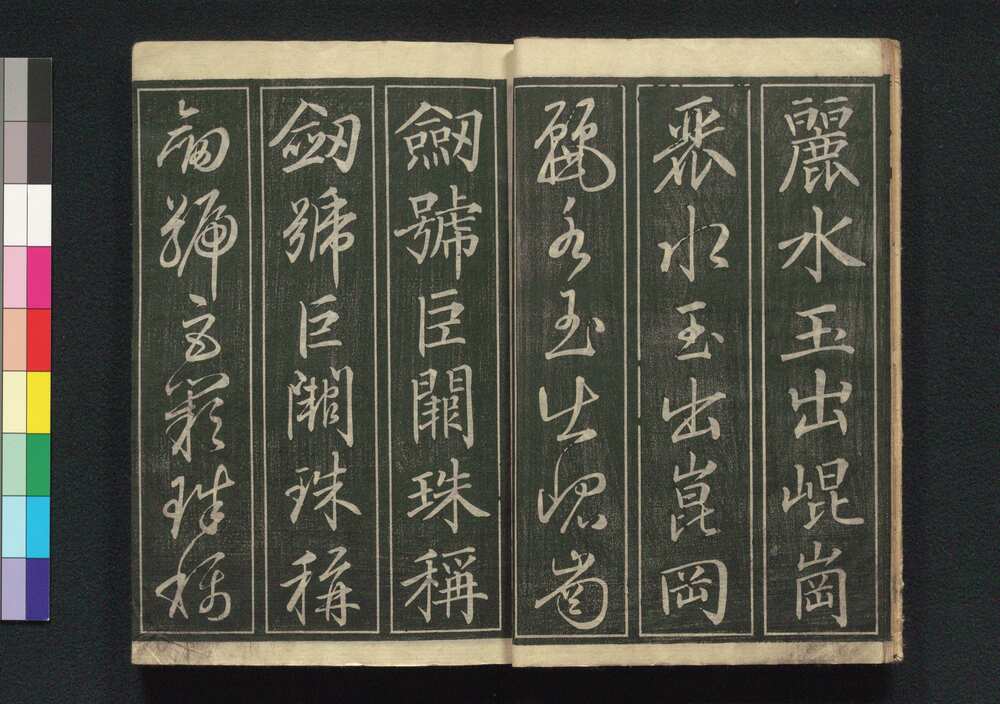 麗水玉出崐崗
麗水玉出崑岡
麗水玉出崐崗
劔號巨闕珠稱
劔號巨闕珠稱
劔號巨闕珠稱